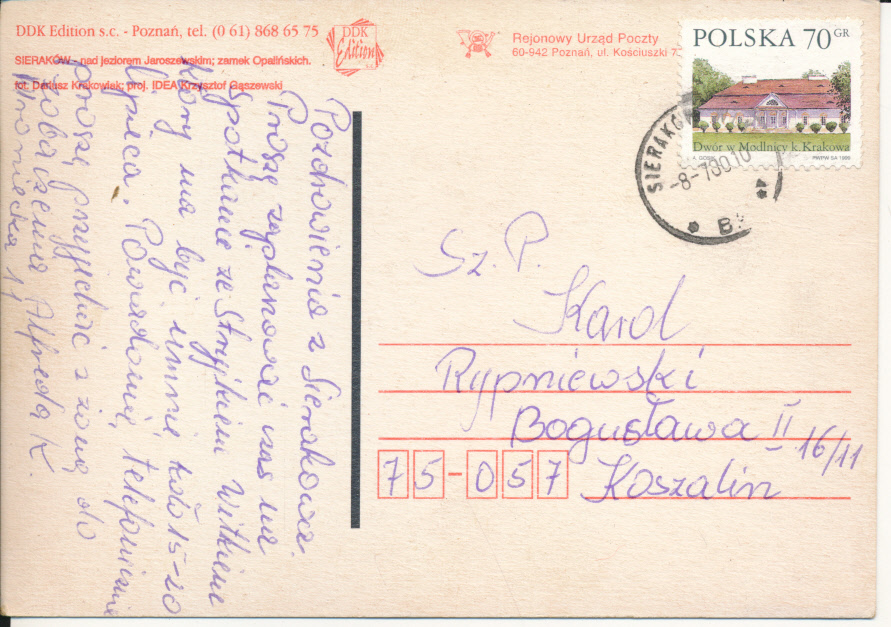 DDK Edition s.c. - Poznań, tel. (0 61) 868 65 75
SIERAKÓW - nad jeziorem Jaroszewskim; zamek Opalińskich.
fot. Dariusz Krakowiak; proj. IDEA Krzysztof Gąszewski
DDK
Edition
Rejonowy Urząd Poczty
60-942 Poznań, ul. Kościuszki 7
POLSKA 70 GR
Dwór w Modlnicy k. Krakowa
PWPW SA 1999
SIERAKÓ
-8-7 00.10
B
Pozdrowienia z Sierakowa.
Proszę zaplanować czas na
spotkanie ze Stryjkiem Witkiem
który ma być u mnie koło 15-20
lipca. Powiadomię telefonicznie
proszę przyjechać z żoną do
zobaczenia Alfreda K.
Wroniecka 17
Sz. P.
Karol
Rypniewski
Bogusława II 16/11
75-057 Koszalin